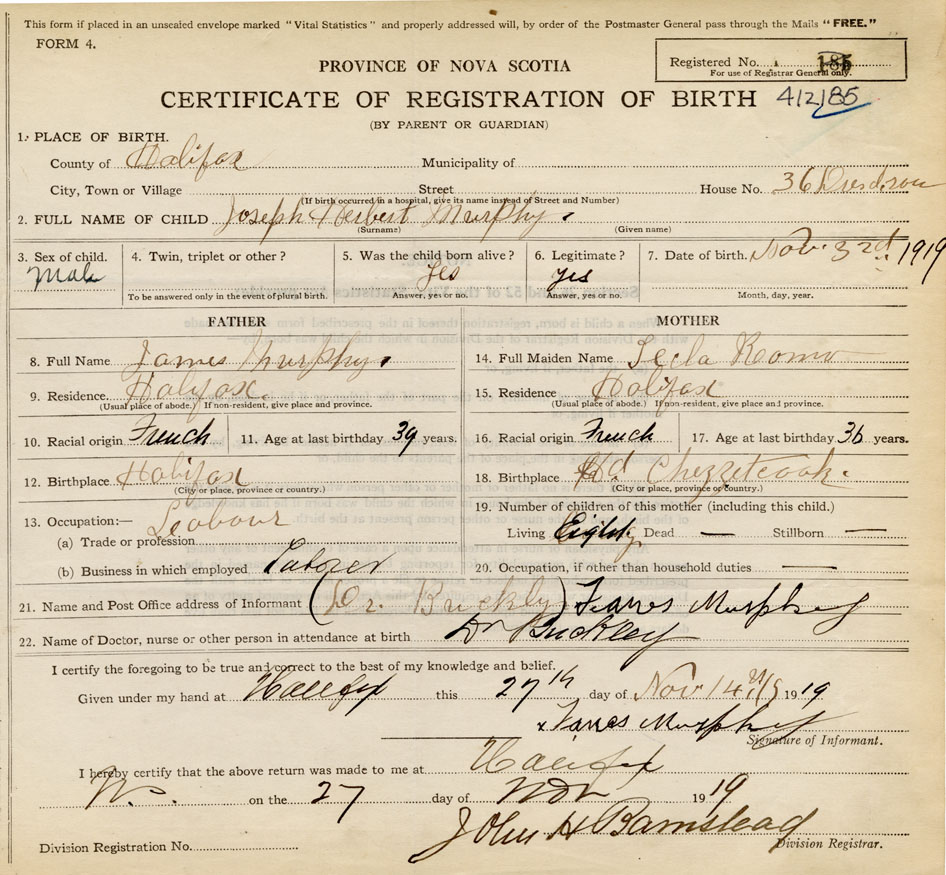 This form if placed in an unsealed envelope marked "Vital Statistics" and properly addressed will, by order of the Postmaster General pass through the Mails "FREE."
FORM 4.
Registered No. 185
For use of Registrar General only.
PROVINCE OF NOVA SCOTIA
CERTIFICATE OF REGISTRATION OF BIRTH 412185
(BY PARENT OR GUARDIAN)
1. PLACE OF BIRTH.
County of Halifax Municipality of
City, Town or Village Street House No. 36
(If birth occurred in a hospital, give its name instead of Street and Number)
2. FULL NAME OF CHILD Joseph Herbert Murphy
(Surname) (Given name)
3. Sex of child. 4. Twin, triplet or other? 5. Was the child born alive? 6. Legitimate? 7. Date of birth. Nov. 3rd 1919
Male Yes yes
To be answered only in the event of plural birth. Answer, yes or no. Answer, yes or no. Month, day, year.
FATHER MOTHER
8. Full Name James Murphy 14. Full Maiden Name Tecla Roma
9. Residence. Halifax. 15. Residence Halifax
(Usual place of abode.) If non-resident, give place and province. (Usual place of abode.) If non-resident, give place and province.
10. Racial origin French 11. Age at last birthday 39 years. 16. Racial origin French 17. Age at last birthday 36 years.
12. Birthplace Halifax 18. Birthplace Hd. Chezzetcook.
(City or place, province or country.) (City or place, province or country.)
13. Occupation:— 19. Number of children of this mother (including this child.)
(a) Trade or profession Labour Living Eight Dead — Stillborn —
(b) Business in which employed Laborer 20. Occupation, if other than household duties —
21. Name and Post Office address of Informant (Dr. Buckly) James Murphy
22. Name of Doctor, nurse or other person in attendance at birth Dr Buckley
I certify the foregoing to be true and correct to the best of my knowledge and belief.
Given under my hand at Halifax this 27th day of Nov 14 1919
x James Murphy
Signature of Informant.
I hereby certify that the above return was made to me at Halifax
N.S. on the 27 day of Nov 1919
John H Barnstead
Division Registration No. Division Registrar.